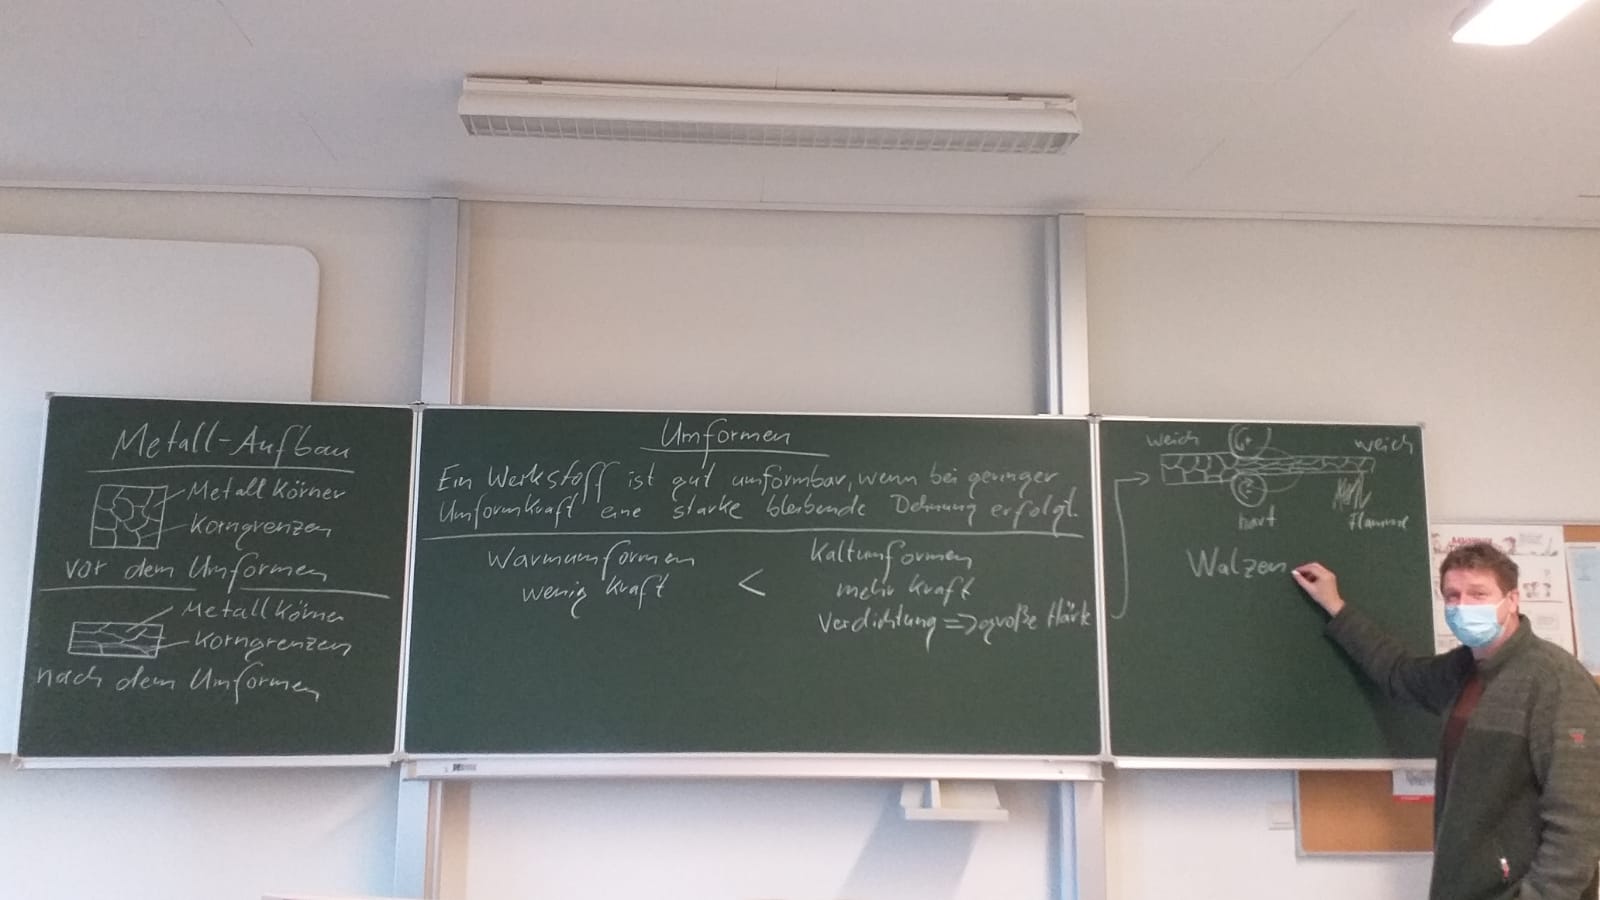 Metall-Aufbau
Metall Körner
Korngrenzen
vor dem Umformen
Metall Körner
Korngrenzen
nach dem Umformen
Umformen
Ein Werkstoff ist gut umformbar, wenn bei geringer
Umformkraft eine starke bleibende Dehnung erfolgt.
Warmumformen < Kaltumformen
wenig Kraft
mehr Kraft
Verdichtung => große Härte
weich
weich
hart
Flamme
Walzen